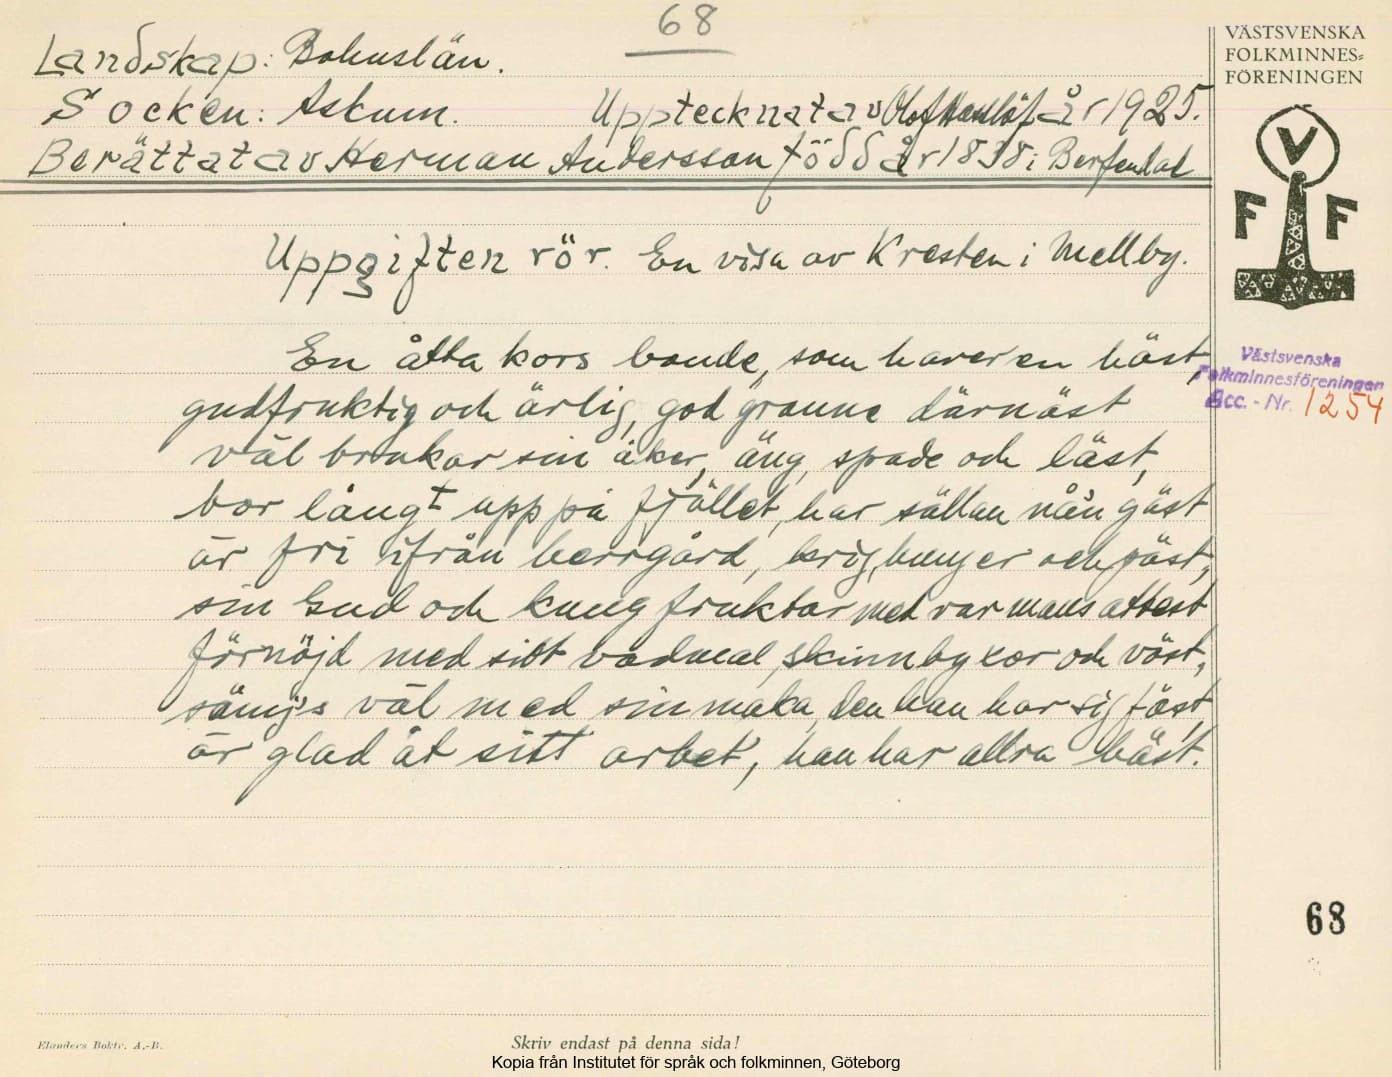 68
Landskap: Bohuslän.
Socken: Askum. Upptecknat av Olof Hasslöf år 1925.
Berättat av Herman Andersson född år 1838 i Berfendal
Uppgiften rör. En visa av Kresten i Mellby.
En åtta kors bonde, som haver en häst,
gudfruktig och ärlig, god granne därnäst
väl brukar sin åker, äng, spade och läst,
bor långt upp på fjället, har sällan nå'n gäst
är fri ifrån herrgård, krig, hunger och päst,
sin Gud och kung fruktar med var mans attest
förnöjd med sitt vadmal, skinnbyxor och väst,
sämjs väl med sin maka, den han har sig fäst,
är glad åt sitt arbet', han har allra bäst.
VÄSTSVENSKA
FOLKMINNES-
FÖRENINGEN
V
F F
Västsvenska
Folkminnesföreningen
Acc. - Nr. 1254
68
Elanders Boktr. A.-B.
Skriv endast på denna sida!
Kopia från Institutet för språk och folkminnen, Göteborg